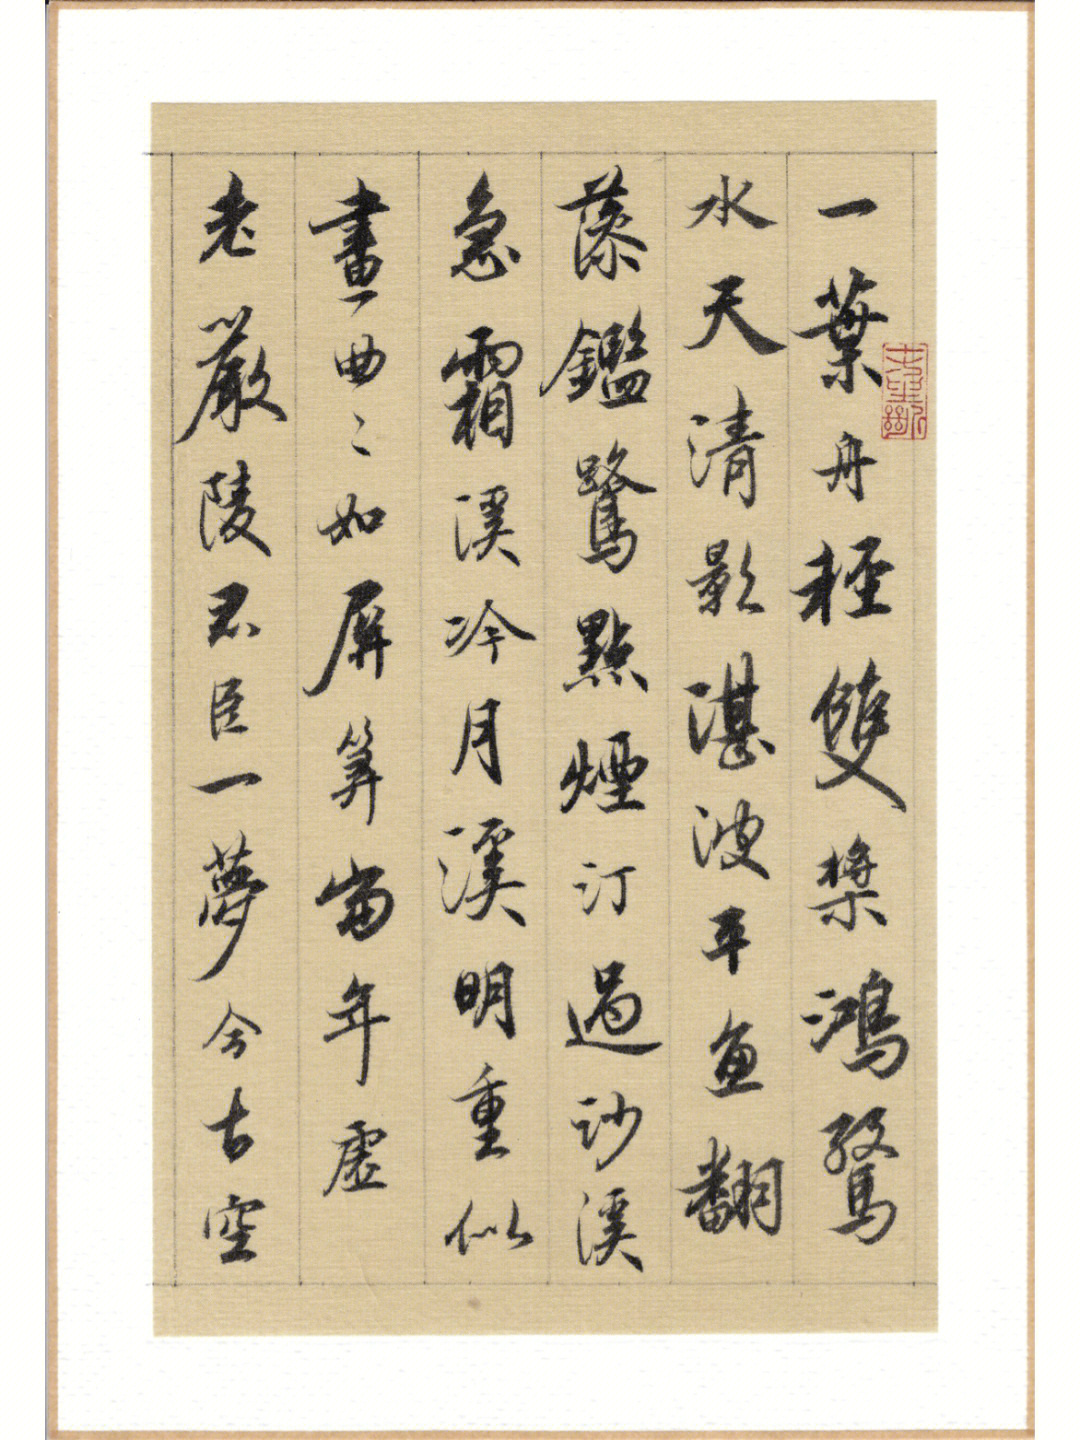 一葉舟輕雙槳鴻驚
水天清影湛波平魚翻
藻鑑鷺點煙汀過沙溪
急霜溪冷月溪明重似
畫曲〻如屏算當年虛
老嚴陵君臣一夢今古空